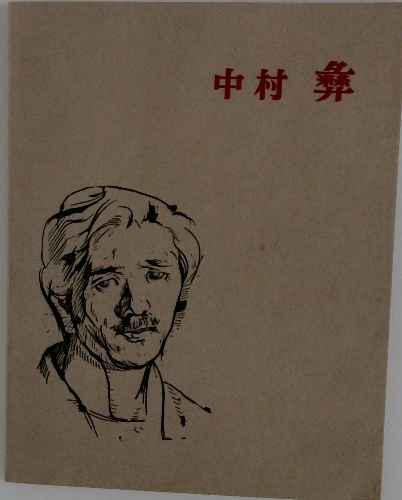 中村 彝